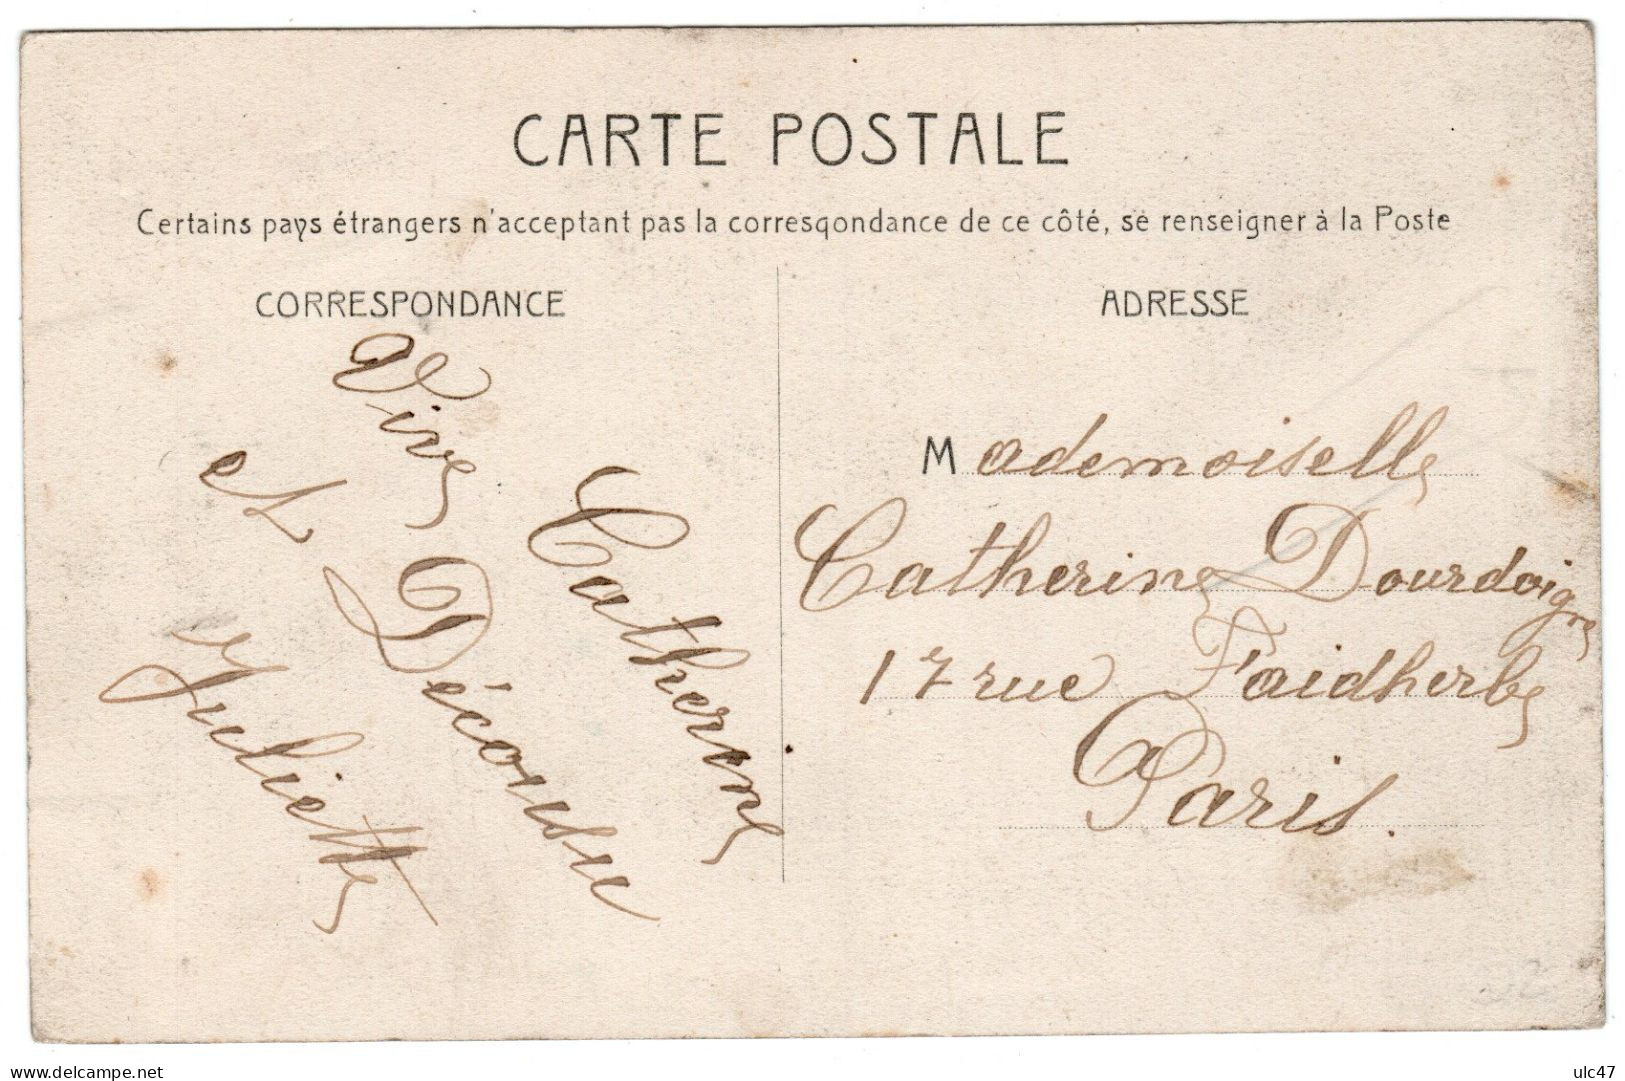 CARTE POSTALE
Certains pays étrangers n'acceptant pas la corresqondance de ce côté, se renseigner à la Poste
CORRESPONDANCE
Vive Catherine
et Décousu
Juliette
ADRESSE
Mademoiselle
Catherine Dourdoigne
17 rue Faidherbe
Paris.
www.delcampe.net
ulc47